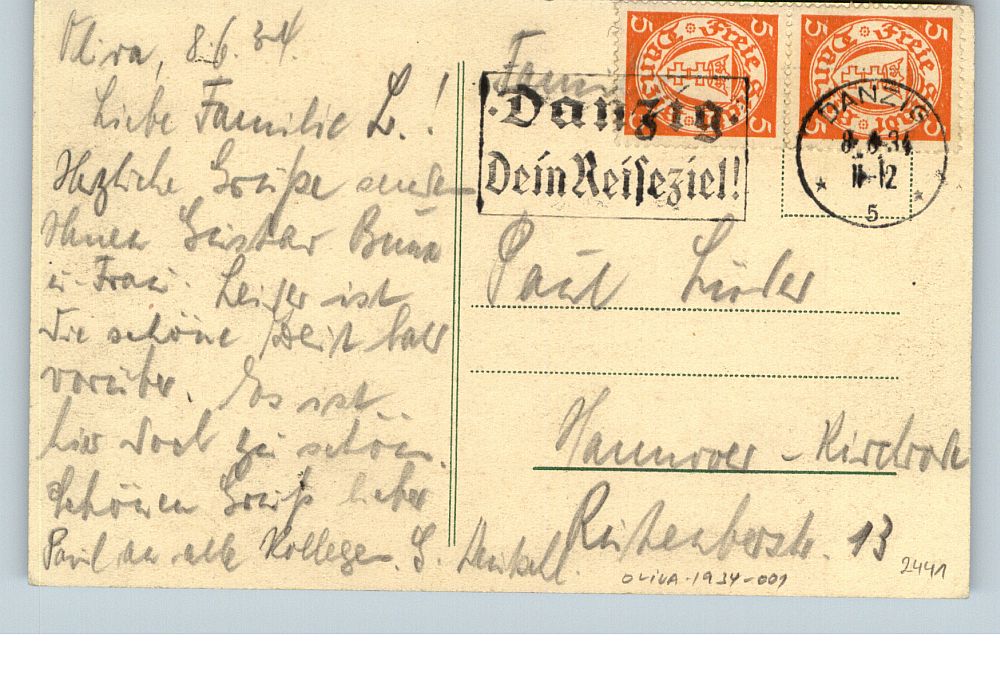 Oliva, 8.6.34.
Liebe Familie L.!
Herzliche Grüße senden
Ihnen Gustav
u. Frau. Leider ist
die schöne Zeit bald
vorüber. Es ist
hier doch zu schön.
Schönen Gruß lieber
Paul an alle Kollegen. G.
5 Freie Stadt Danzig 5
5 Freie Stadt Danzig 5
Danzig.
Dein Reiseziel!
DANZIG
8.6.34
11-12
5
Familie
Paul Lüder
Hannover - Kirchrode
13
OLIVA-1934-001
2441